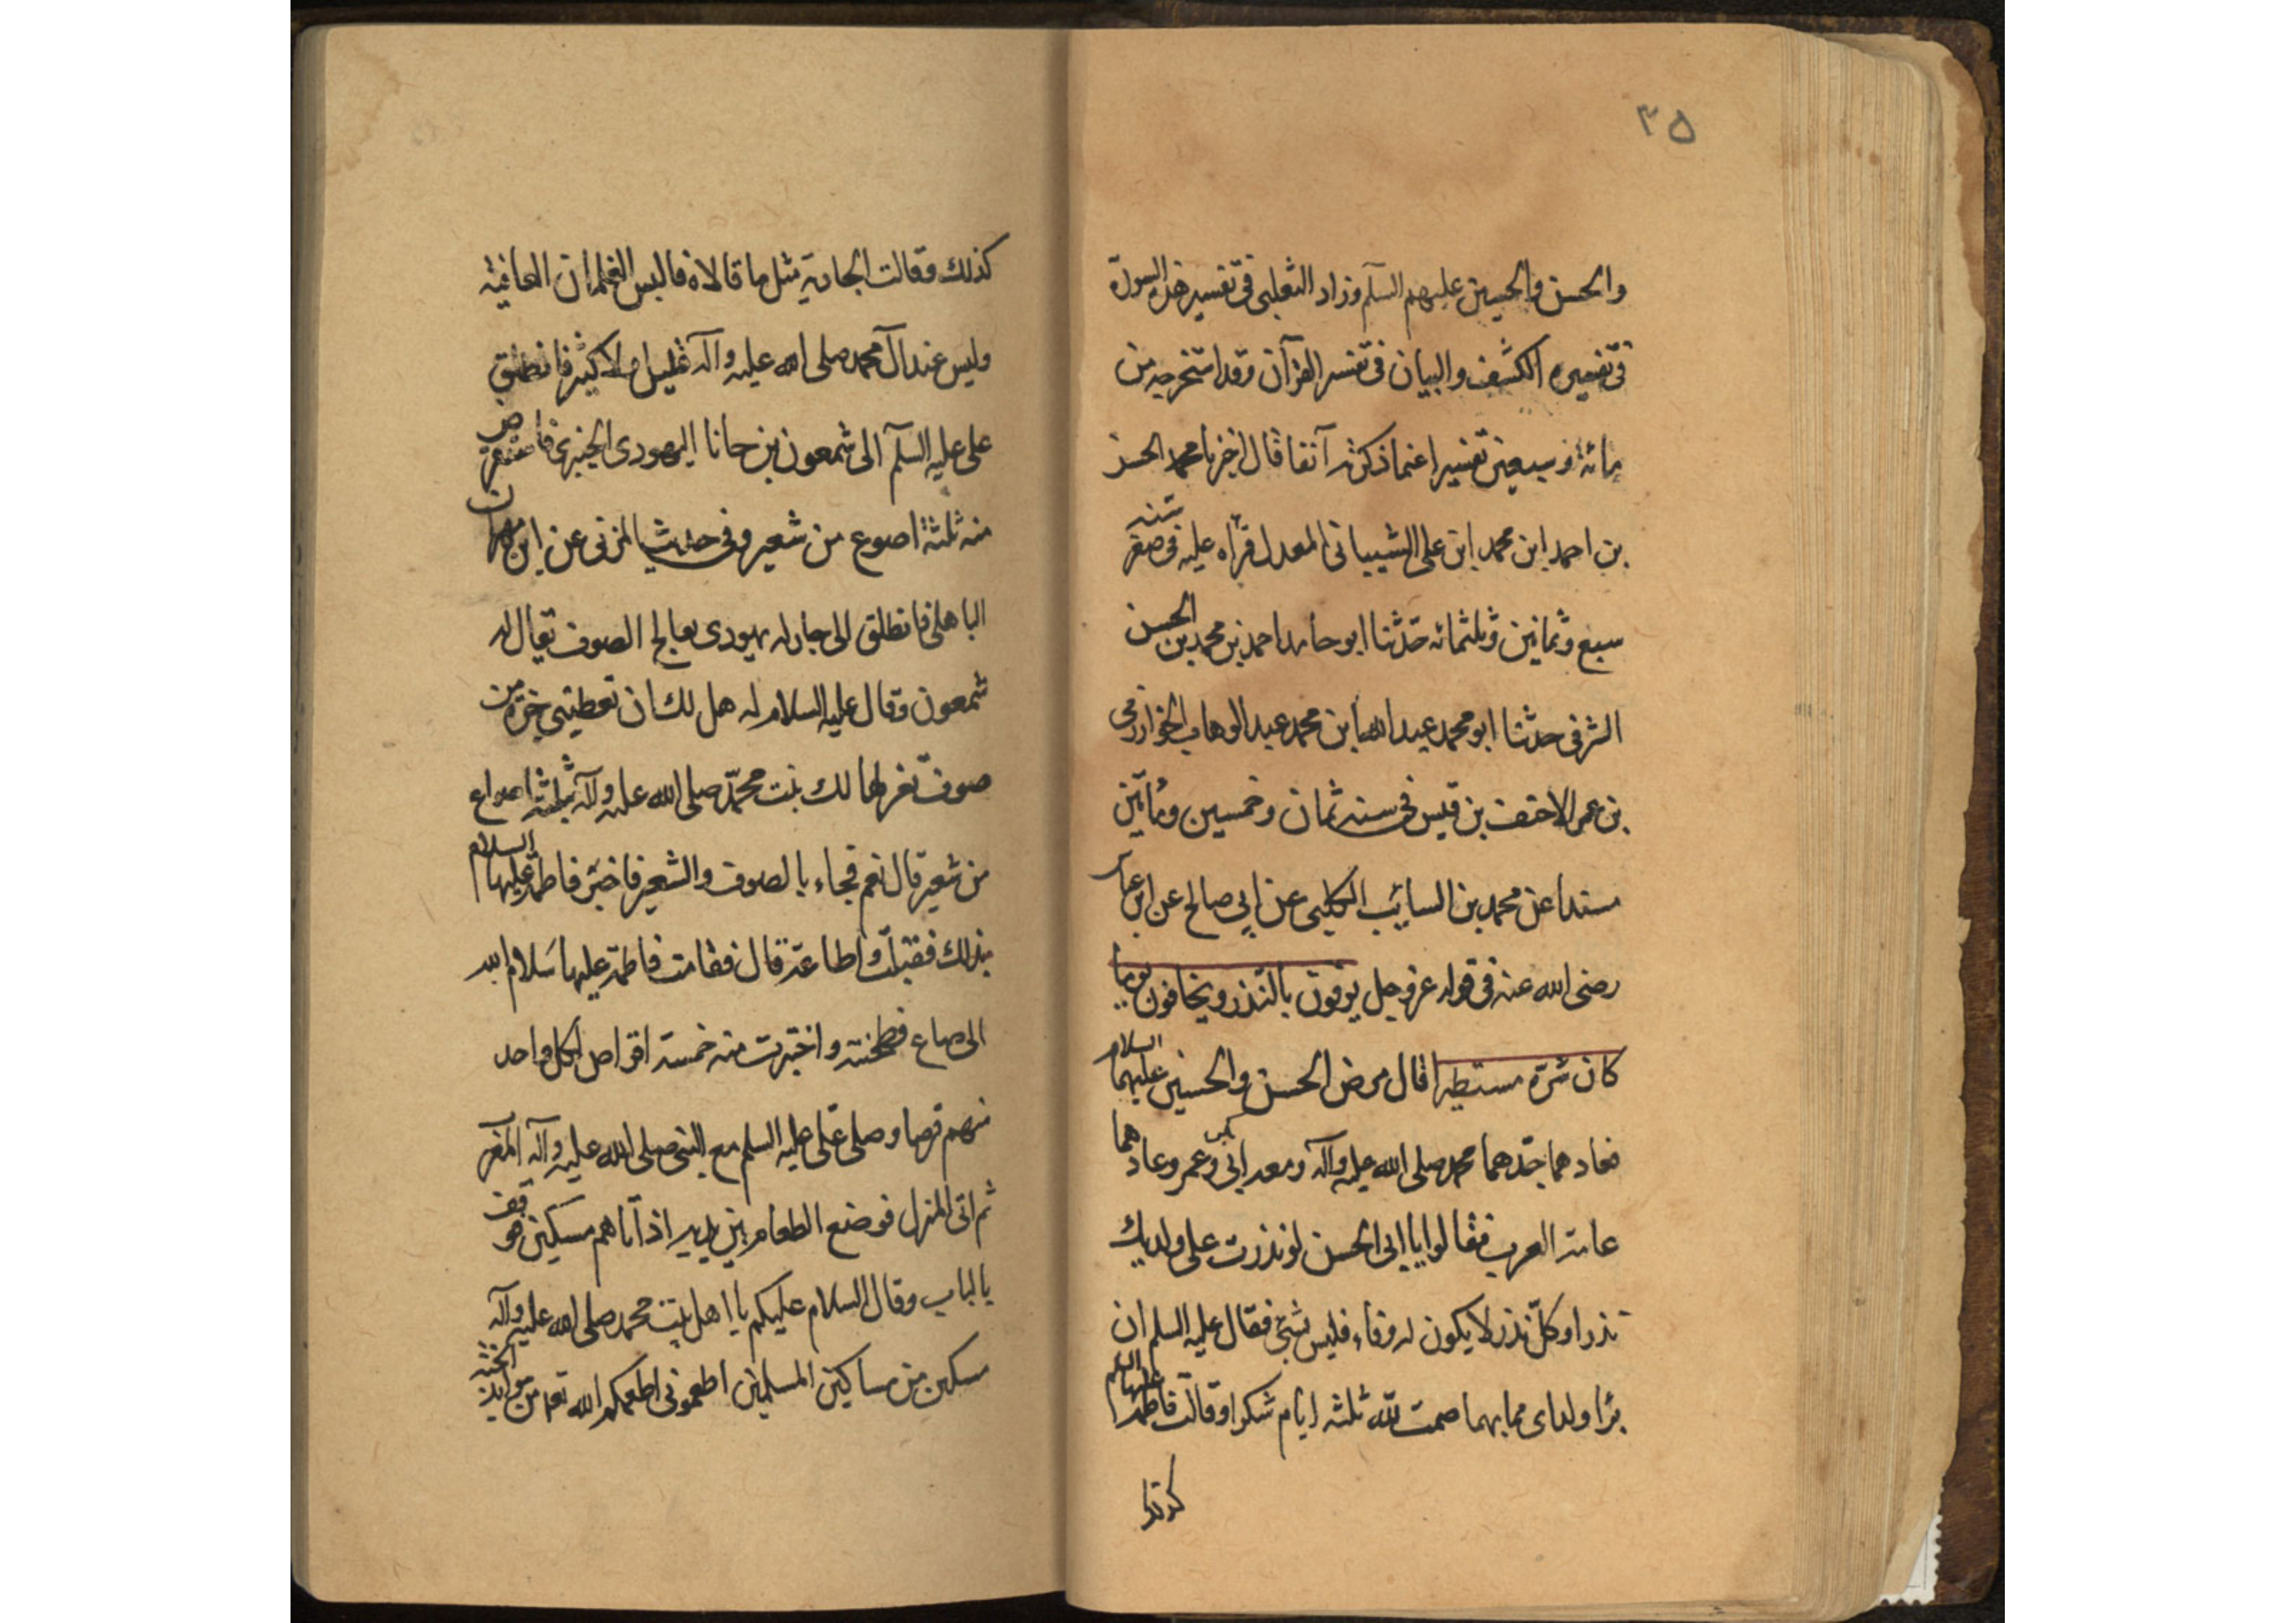 ٣٥
والحسن والحسين عليهم السلم وزاد الثعلبى فى تفسير هذه السورة
فى تفسيره الكشف والبيان فى تفسر القرآن وقد استخرجه من
مائة وسبعين تفسيرا عنما ذكرته آنفا قال اخبرنا محمد الحسن
بن احمد ابن محمد ابن على الشيبانى المعدل قراه عليه فى صفر سنه
سبع وثمانين وثلثمائه حدثنا ابو حامد احمد بن محمد بن الحسن
الشرفى حدثنا ابو محمد عبد الله ابن محمد عبد الوهاب الخوارزمى
بن عمر الاحنف بن قيس فى سنه ثمان وخمسين ومأتين
مسندا عن محمد بن السايب الكلبى عن ابى صالح عن ابن عباس
رضى الله عنه فى قوله عز وجل يوفون بالنذر ويخافون يوما
كان شره مستطيرا قال مرض الحسن والحسين عليهما السلام
فعادهما جدهما محمد صلى الله عليه وآله ومعه ابى بكر وعمر وعادهما
عامة العرب فقالوا يا ابى الحسن لو نذرت على ولديك
نذرا وكل نذر لا يكون له وفاء فليس بشئ فقال عليه السلم ان
برا ولداى مما بهما صمت لله ثلثه ايام شكرا وقالت فاطمة عليها السلم
كذلك وقالت الجارية مثل ما قالاه فالبس الغلمان العافية
وليس عند آل محمد صلى الله عليه وآله قليل ولا كثير فانطلق
على عليه السلم الى شمعون بن حانا اليهودى الخيبرى فاستقرض
منه ثلثة اصوع من شعير وفى حديث المزنى عن ابن مهران
الباهلى فانطلق الى جار له يهودى يعالج الصوف يقال له
شمعون وقال عليه السلام له هل لك ان تعطينى جزة من
صوف تغزلها لك بنت محمد صلى الله عليه وآله بثلثة اصواع
من شعير قال نعم فجاء بالصوف والشعير فاخبر فاطمة عليها السلام
بذلك فقبلت واطاعت قال فقامت فاطمة عليها سلام الله
الى صاع فطحنته واختبزت منه خمسة اقراص لكل واحد
منهم قرصا وصلى على عليه السلم مع النبى صلى الله عليه وآله المغرب
ثم اتى المنزل فوضع الطعام بين يديه اذ اتاهم مسكين فوقف
بالباب وقال السلام عليكم يا اهل بيت محمد صلى الله عليه وآله
مسكين من مساكين المسلمين اطعمونى اطعمكم الله تعه من موايد الجنة